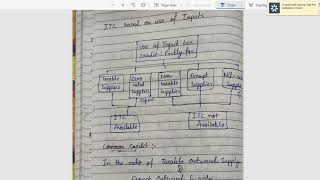 ITC based on use of Inputs
Use of Input tax
credit: Partly for
Taxable
Supplies
Zero
rated
Supplies
Non-
taxable
Supplies
Exempt
Supplies
Nil-
Supplies
Export
ITC
Available
ITC not
Available
Common Credit :-
In the ratio of Taxable Outward Supply
&
Exempt Outward Supply